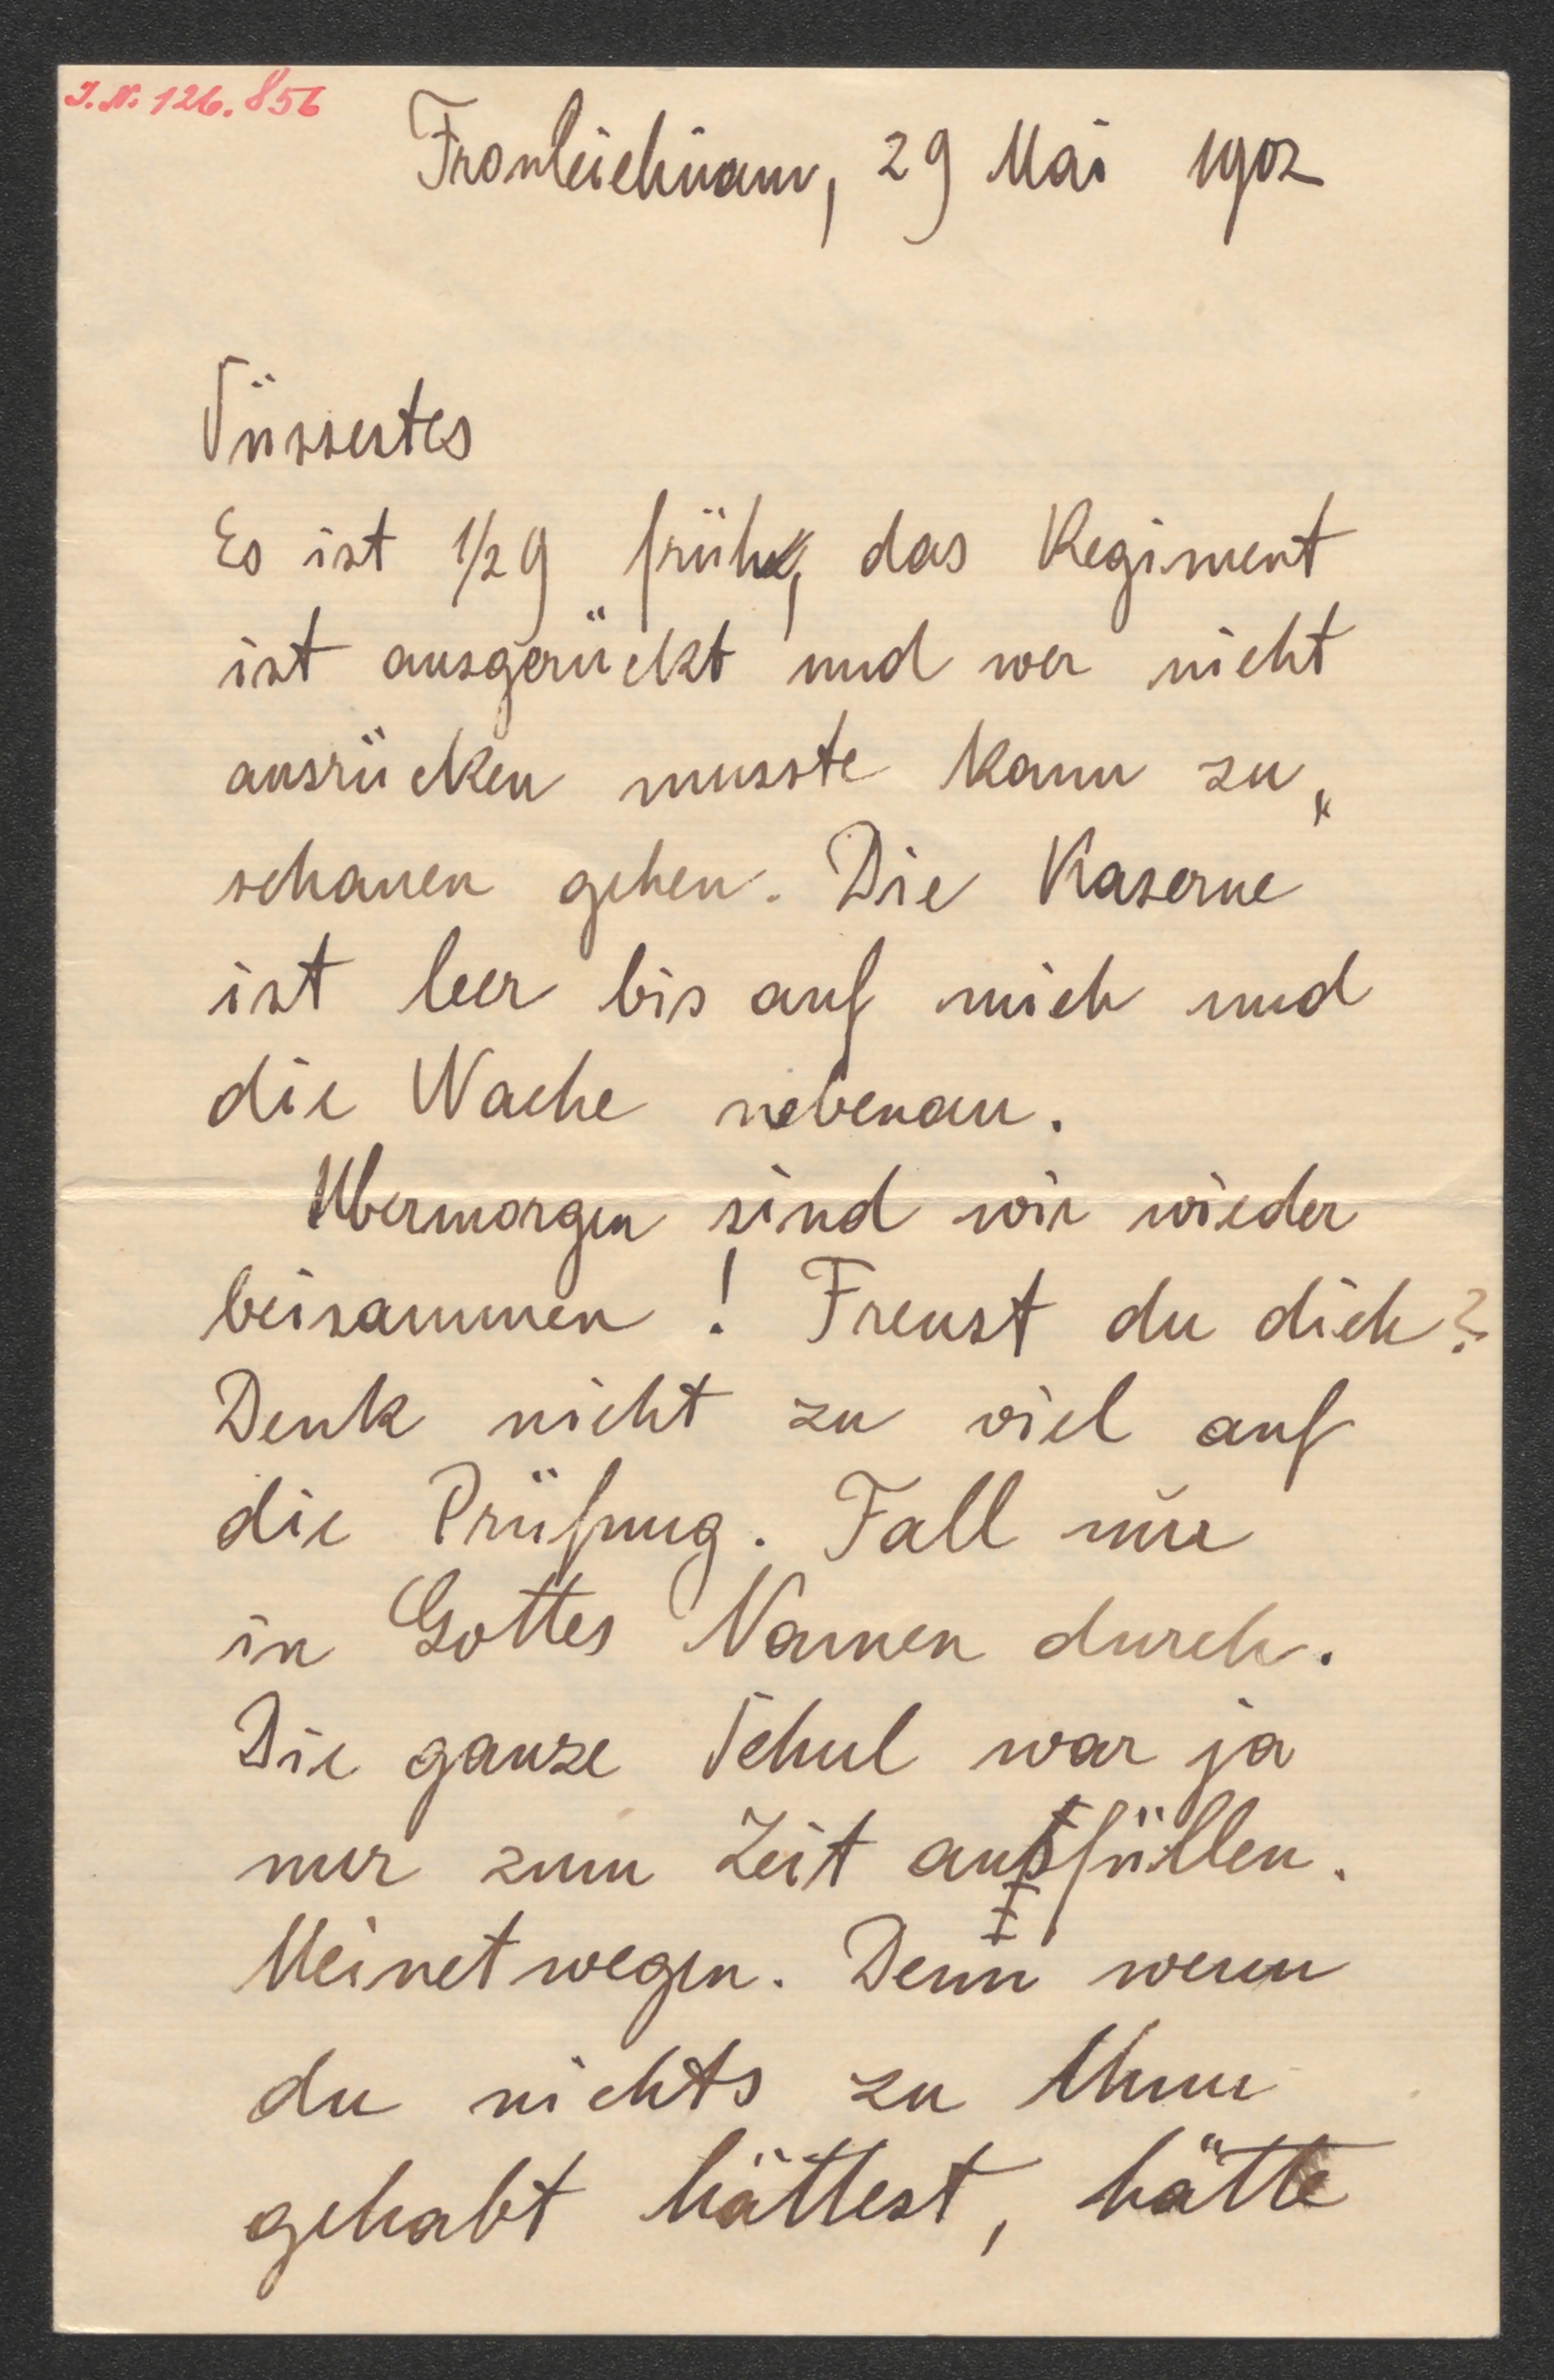 I.N. 126.856
Fronleichnam, 29 Mai 1902
Süssestes
Es ist 1/2 9 früh, das Regiment
ist ausgerückt und wer nicht
ausrücken musste kann zu„
schauen gehen. Die Kaserne
ist leer bis auf mich und
die Wache nebenan.
Übermorgen sind wir wieder
beisammen! Freust du dich?
Denk nicht zu viel auf
die Prüfung. Fall nur
in Gottes Namen durch.
Die ganze Schul war ja
nur zum Zeit ausfüllen.
Meinetwegen. Denn wenn
du nichts zu thun
gehabt hättest, hätte